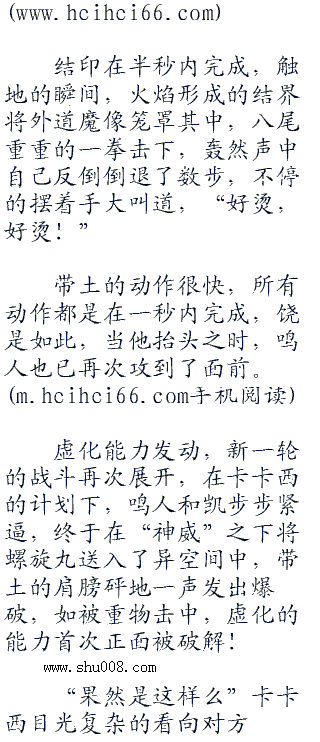 (www.hcihci66.com)
结印在半秒内完成，触
地的瞬间，火焰形成的结界
将外道魔像笼罩其中，八尾
重重的一拳击下，轰然声中
自己反倒倒退了数步，不停
的摆着手大叫道，“好烫，
好烫！”
带土的动作很快，所有
动作都是在一秒内完成，饶
是如此，当他抬头之时，鸣
人也已再次攻到了面前。
(m.hcihci66.com手机阅读)
虚化能力发动，新一轮
的战斗再次展开，在卡卡西
的计划下，鸣人和凯步步紧
逼，终于在“神威”之下将
螺旋丸送入了异空间中，带
土的肩膀砰地一声发出爆
破，如被重物击中，虚化的
能力首次正面被破解！
www.shu008.com
“果然是这样么”卡卡
西目光复杂的看向对方